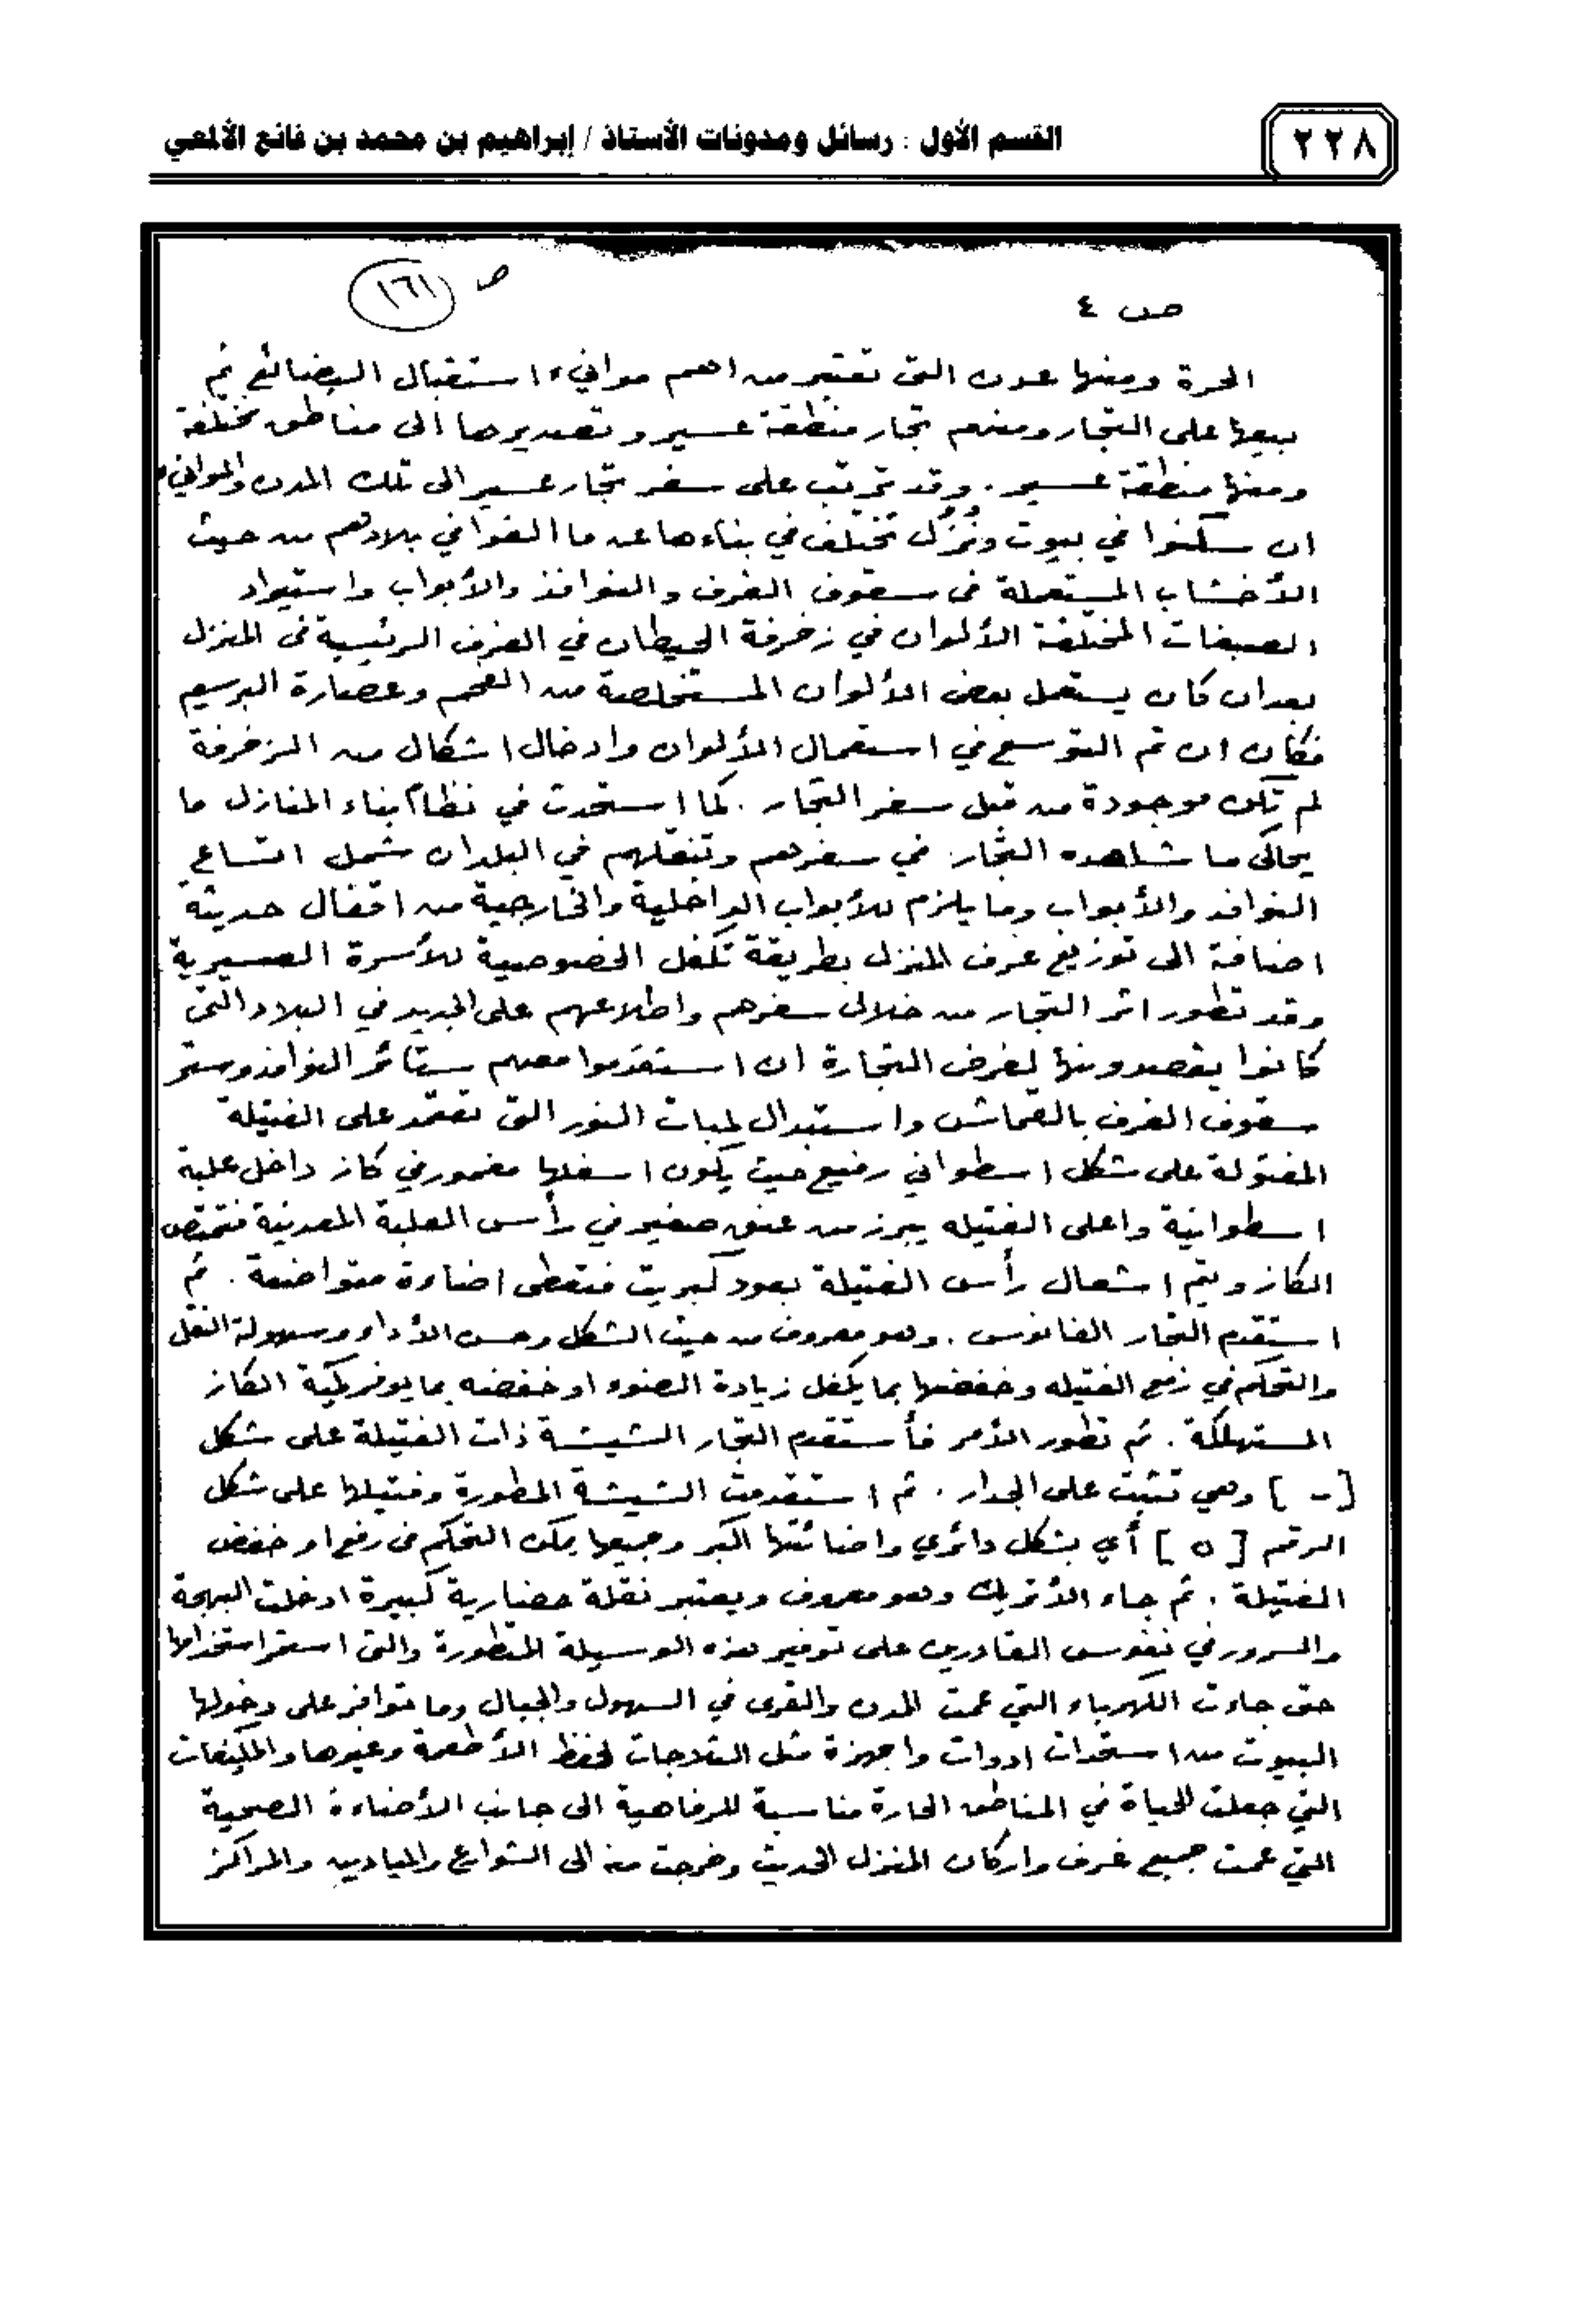 ٢٢٨
القسم الأول : رسائل ومدونات الأستاذ / إبراهيم بن محمد بن فائع الألمعي
ص ١٦١
ص ٤
الحرة ومنها عدن التي تعتبر من اهم موانيء استقبال البضائع ثم
بيعها على التجار ومنهم تجار منطقة عسير وتصديرها الى مناطق مختلفة
ومنها منطقة عسير . وقد ترتب على سفر تجار عسير الى تلك المدن والموانيء
ان سكنوا في بيوت ونُزُل تختلف في بناءها عن ما الفوا في بلادهم من حيث
الأخشاب المستعملة في سقوف الغرف والنوافذ والأبواب واستيراد
الصبغات المختلفة الألوان في زخرفة الحيطان في الغرف الرئيسية في المنزل
بعد ان كان يستعمل بعض الألوان المستخلصة من الفحم وعصارة البرسيم
فكان ان تم التوسع في استعمال الألوان وادخال اشكال من الزخرفة
لم تكن موجودة من قبل سفر التجار . كما استحدث في نظام بناء المنازل ما
يحاكى ما شاهده التجار في سفرهم وتنقلهم في البلدان شمل اتساع
النوافذ والأبواب وما يلزم للأبواب الداخلية والخارجية من اقفال حديثة
اضافة الى توزيع غرف المنزل بطريقة تكفل الخصوصية للأسرة العسيرية
وقد تطور اثر التجار من خلال سفرهم واطلاعهم على الجديد في البلاد التي
كانوا يقصدونها لغرض التجارة ان استقدموا معهم ستائر النوافذ وستر
سقوف الغرف بالقماش واستبدال لمبات النور التي تعتمد على الفتيلة
المفتولة على شكل اسطواني رفيع حيث يكون اسفلها مغمور في كاز داخل علبة
اسطوانية واعلى الفتيله يبرز من عنق صغير في رأس العلبة المعدنية فتمتص
الكاز ويتم اشعال رأس الفتيلة بعود كبريت فتعطى اضاءة متواضعة . ثم
استقدم التجار الفانوس . وهو معروف من حيث الشكل وحسن الأداء وسهولة النقل
والتحكم في رفع الفتيله وخفضها بما يكفل زيادة الضوء او خفضه بما يوفر كمية الكاز
المستهلكة . ثم تطور الأمر فأستقدم التجار الشيشة ذات الفتيلة على شكل
[ - ] وهي تثبت على الجدار . ثم استقدمت الشيشة المطورة وفتيلها على شكل
الرقم [ ٥ ] أي بشكل دائري واضائتها اكبر وجميعها يمكن التحكم في رفع او خفض
الفتيلة . ثم جاء الأتريك وهو معروف ويعتبر نقلة حضارية كبيرة ادخلت البهجة
والسرور في نفوس القادرين على توفير هذه الوسيلة المتطورة والتي استمر استخدامها
حتى جاءت الكهرباء التي عمت المدن والقرى في السهول والجبال وما توافر على دخولها
البيوت من استحداث ادوات واجهزة مثل الثلاجات لحفظ الأطعمة وغيرها والمكيفات
التي جعلت الحياة في المناطق الحارة مناسبة للرفاهية الى جانب الأضاءة الصحية
التي عمت جميع غرف واركان المنزل الحديث وخرجت منه الى الشوارع والميادين والمراكز